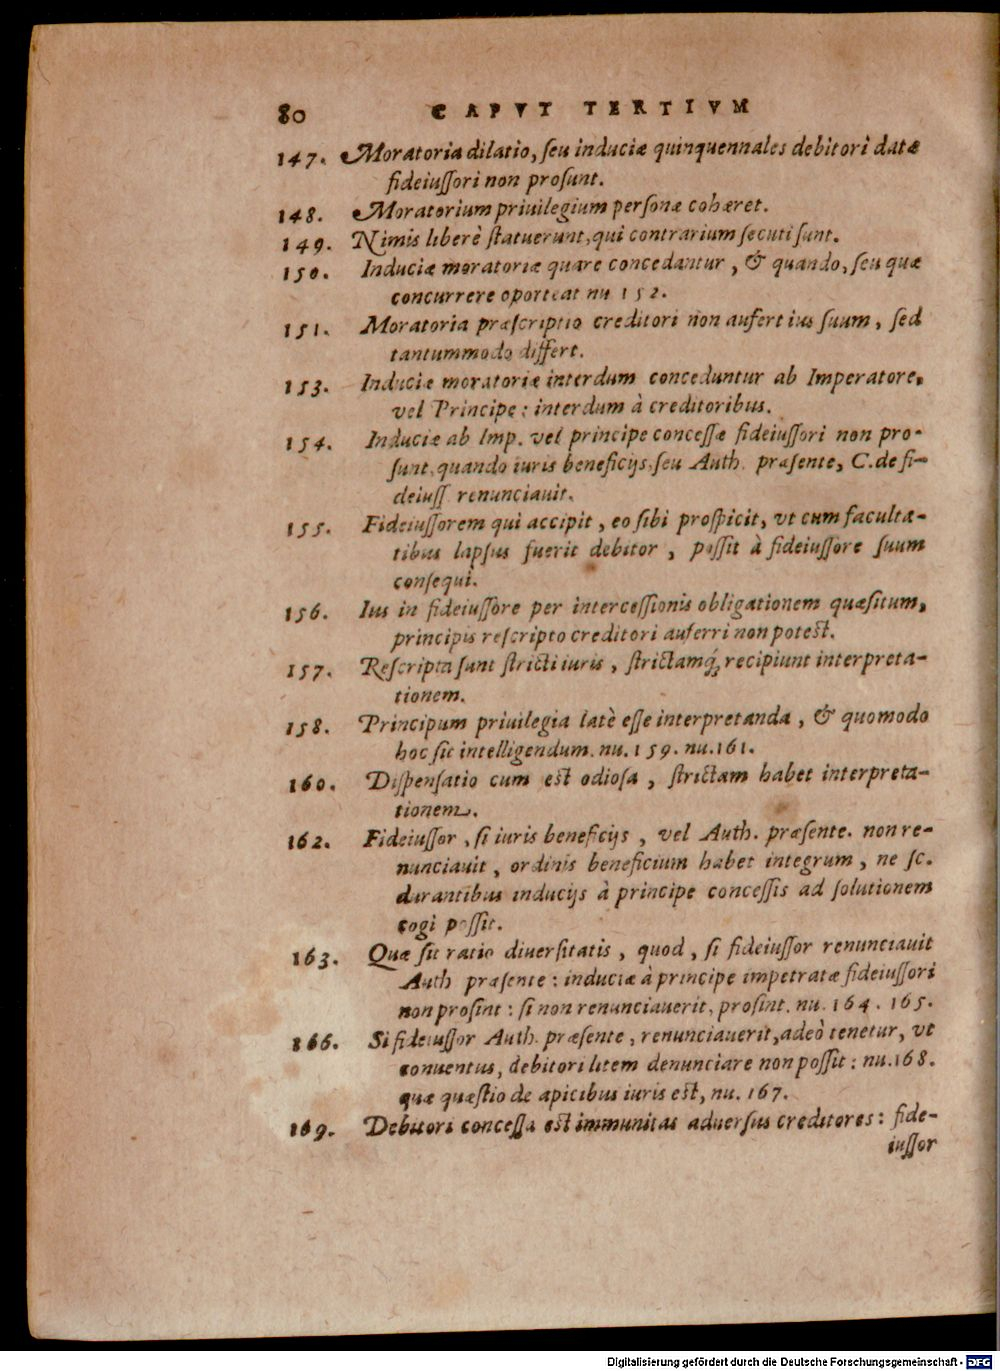 80 CAPVT TERTIVM
147. Moratoria dilatio, ſeu induciæ quinquennales debitori datæ
fideiuſſori non proſunt.
148. Moratorium priuilegium perſonæ cohæret.
149. Nimis liberè ſtatuerunt, qui contrarium ſecuti ſunt.
150. Induciæ moratoriæ quare concedantur, & quando, ſeu quæ
concurrere oporteat nu 152.
151. Moratoria præſcriptio creditori non aufert ius ſuum, ſed
tantummodo differt.
153. Induciæ moratoriæ interdum conceduntur ab Imperatore,
vel Principe: interdum à creditoribus.
154. Induciæ ab Imp. vel principe conceſſæ fideiuſſori non pro-
ſunt, quando iuris beneficijs, ſeu Auth. præſente, C. de fi-
deiuſſ renunciauit.
155. Fideiuſſorem qui accipit, eo ſibi proſpicit, vt cum faculta-
tibus lapſus fuerit debitor, poſſit à fideiuſſore ſuum
conſequi.
156. Ius in fideiuſſore per interceſſionis obligationem quæſitum,
principis reſcripto creditori auferri non poteſt.
157. Reſcripta ſunt ſtricti iuris, ſtrictamq́; recipiunt interpreta-
tionem.
158. Principum priuilegia latè eſſe interpretanda, & quomodo
hoc ſit intelligendum. nu. 159. nu. 161.
160. Diſpenſatio cum eſt odioſa, ſtrictam habet interpreta-
tionem.
162. Fideiuſſor, ſi iuris beneficijs, vel Auth. præſente. non re-
nunciauit, ordinis beneficium habet integrum, ne ſc.
durantibus inducijs à principe conceſſis ad ſolutionem
cogi poſſit.
163. Quæ ſit ratio diuerſitatis, quod, ſi fideiuſſor renunciauit
Auth præſente: induciæ à principe impetratæ fideiuſſori
non proſint: ſi non renunciauerit, proſint. nu. 164. 165.
166. Si fideiuſſor Auth. præſente, renunciauerit, adeò tenetur, vt
conuentus, debitori litem denunciare non poſſit: nu. 168.
quæ quæſtio de apicibus iuris eſt, nu. 167.
169. Debitori conceſſa eſt immunitas aduerſus creditores: fide-
iuſſor
Digitalisierung gefördert durch die Deutsche Forschungsgemeinschaft - DFG